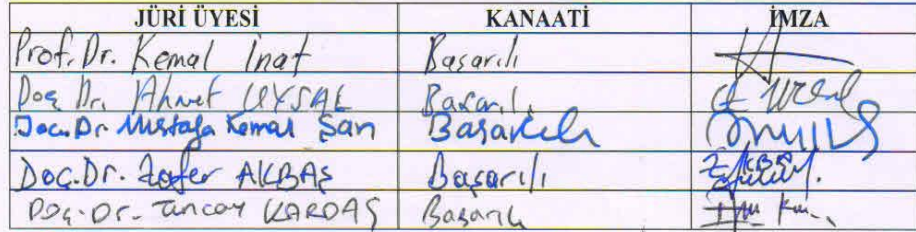 JÜRİ ÜYESİ KANAATİ İMZA
Prof. Dr. Kemal İnat Başarılı
Doç. Dr. Ahmet UYSAL Başarılı
Doc. Dr Mustafa Kemal Şan Başarılı
Doç. Dr. Zafer AKBAŞ Başarılı
Doç. Dr. Tuncay KARDAŞ Başarılı